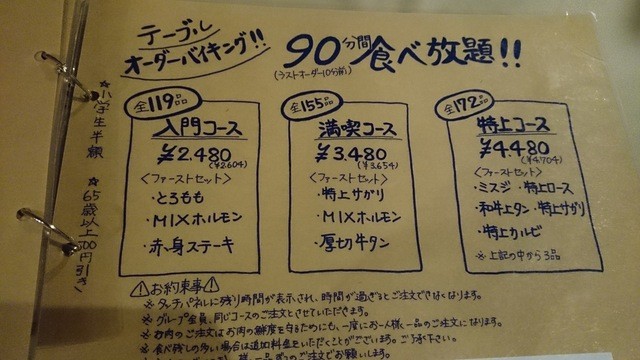 テーブル
オーダーバイキング!!
90分間食べ放題!!
(ラストオーダー10分前)
全119品
入門コース
¥2.480
(¥2.604)
<ファーストセット>
・とろもも
・MIXホルモン
・赤身ステーキ
全155品
満喫コース
¥3.480
(¥3.654)
<ファーストセット>
・特上サガリ
・MIXホルモン
・厚切牛タン
全172品
特上コース
¥4.480
(¥4.704)
<ファーストセット>
・ミスジ ・特上ロース
・和牛上タン ・特上サガリ
・特上カルビ
※上記の中から3品
☆小学生半額 ☆65歳以上500円引き
⚠お約束事⚠
※タッチパネルに残り時間が表示され、時間が過ぎるとご注文できなくなります。
※グループ全員、同じコースのご注文とさせていただきます。
※お肉のご注文はお肉の鮮度を守るためにも、一度にお一人様一品のご注文になります。
※食べ残しの多い場合は追加料金をいただくことがございます。ご了承下さい。
でお願いします。